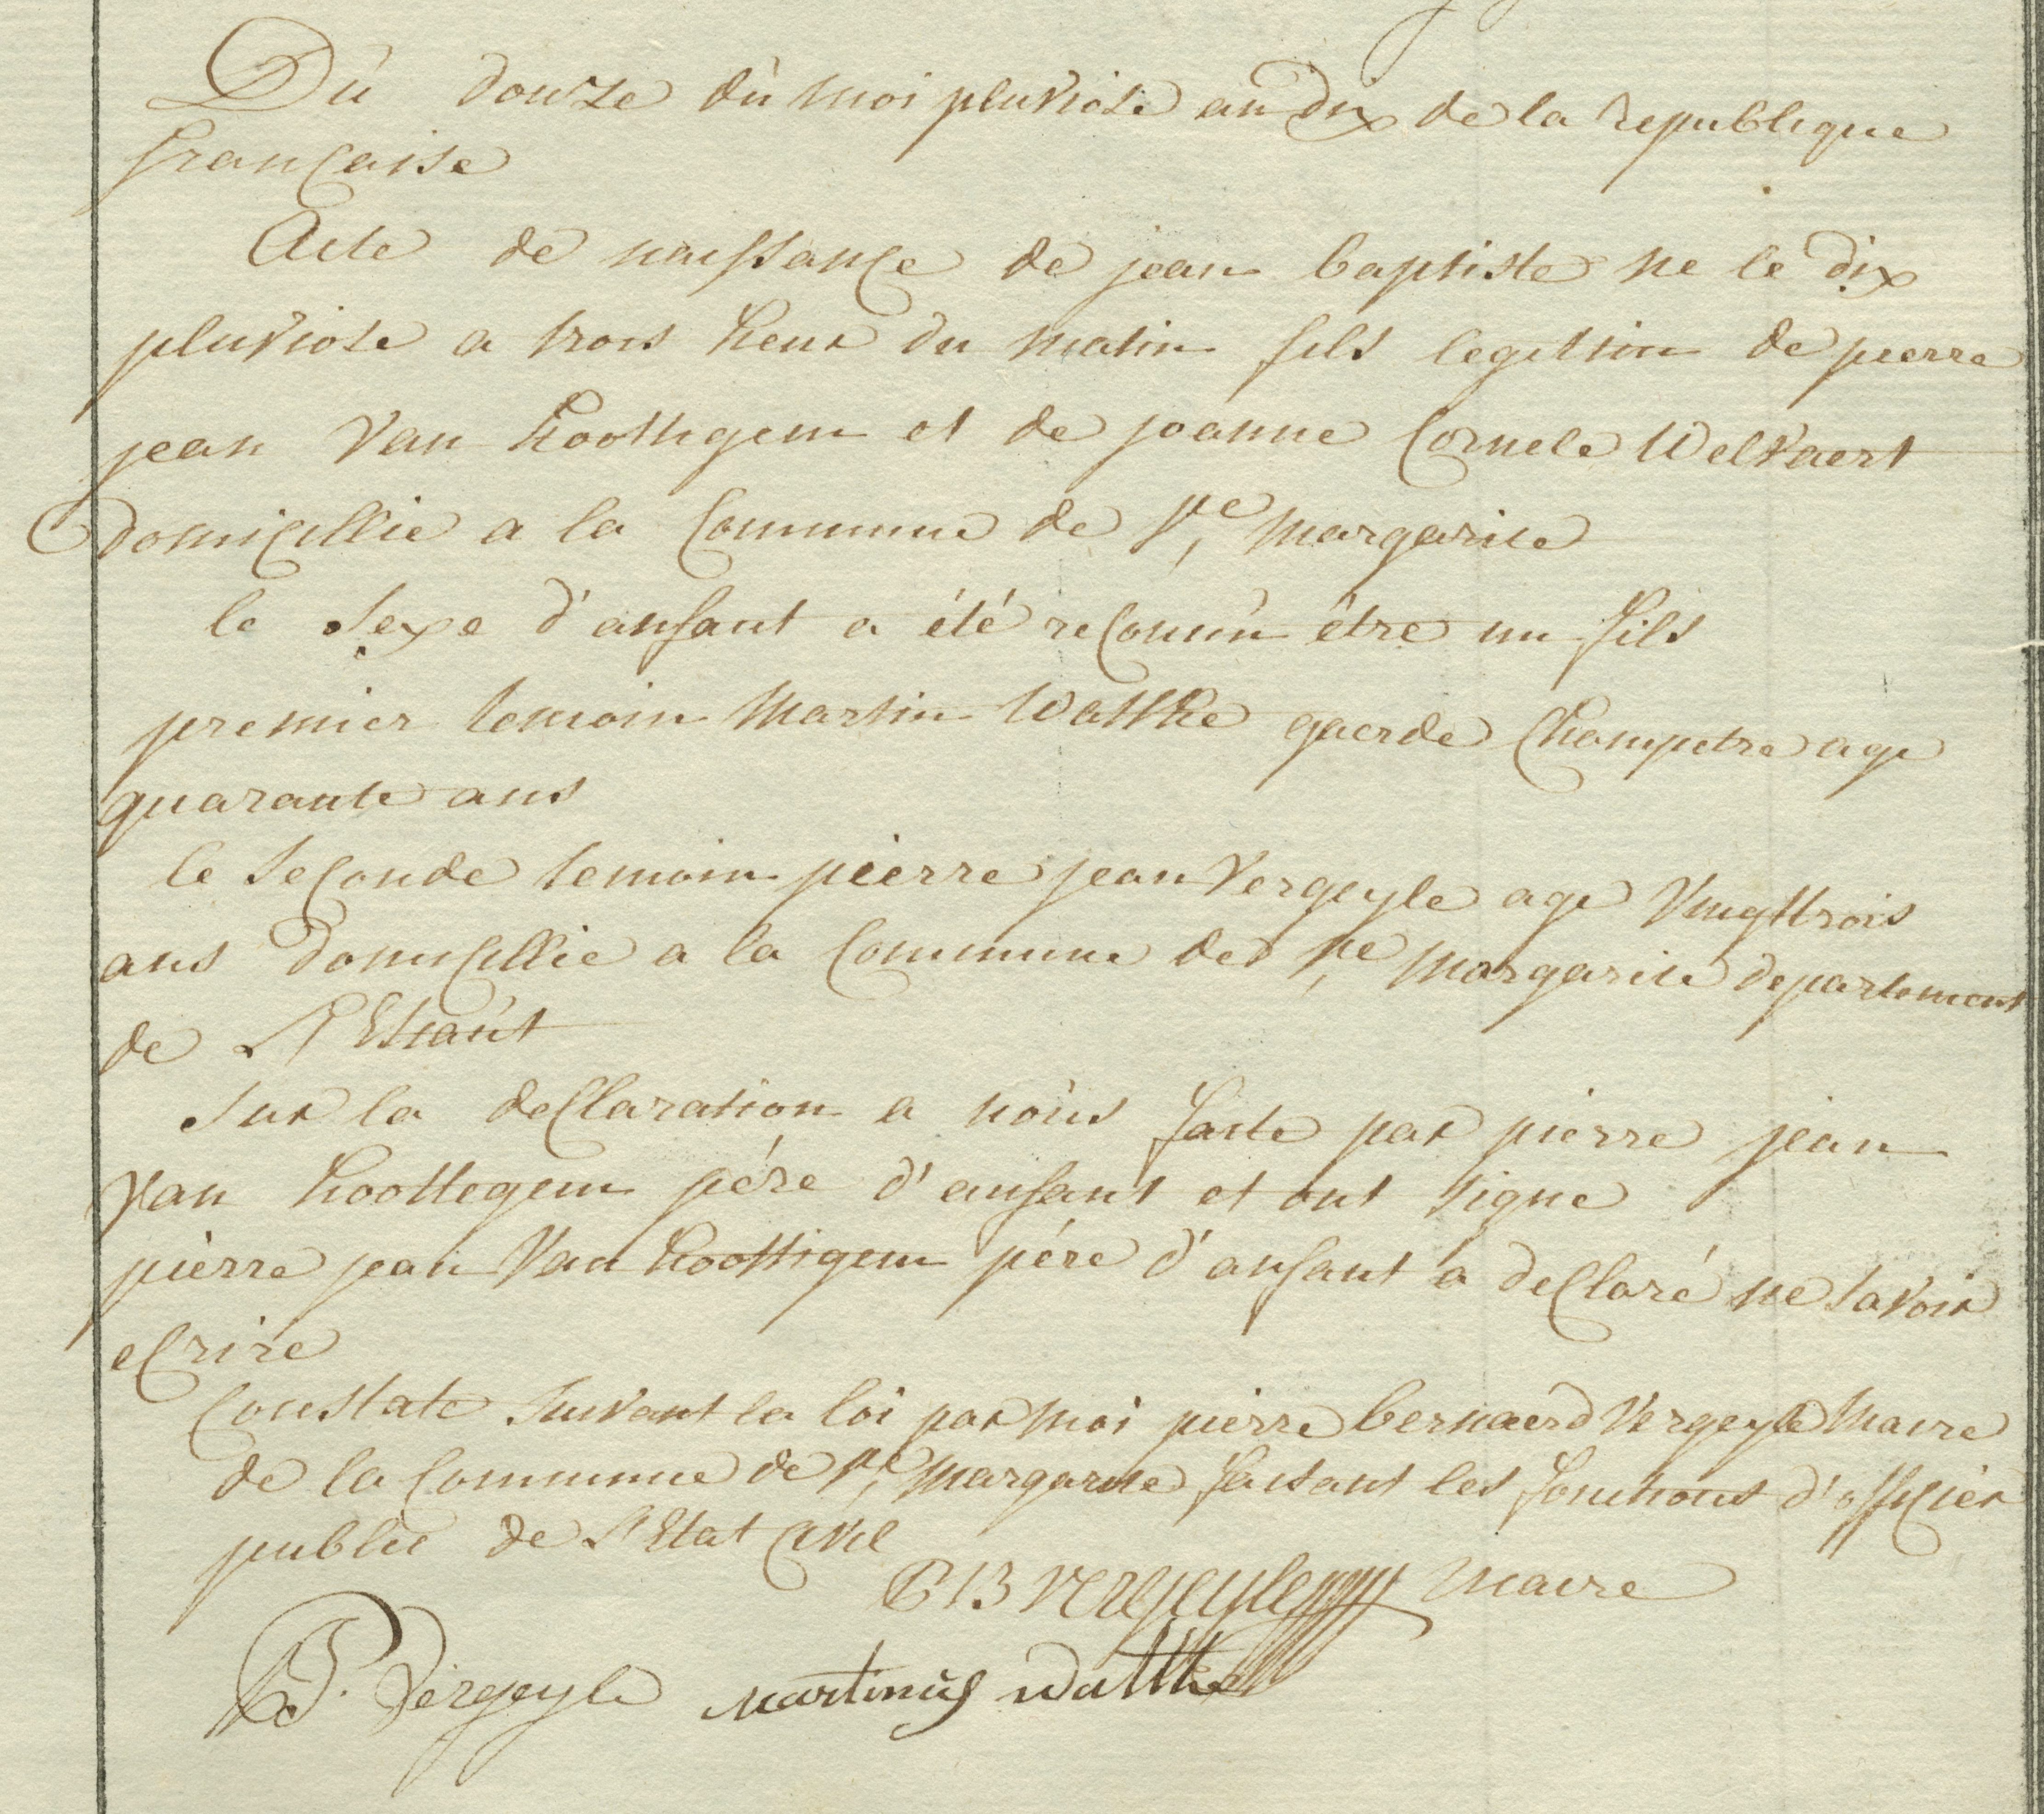 Dù douze dù moi pluviose an dix de la republique
française
Acte de naissance de jean baptiste ne le dix
pluviose a trois heur du matin fils legitim de pierre
jean Van hoottegem et de joanne Cornele Welvaert
domicillie a la Commune de Ste Margarite
le sexe d'anfant a été reconnùn être un fils
premier temoin Martin Watthe gaerde Champetre age
quarante ans
le seconde temoin pierre jean Vergeyle age Vingttrois
ans domicillie a la Commune de Ste Margarite departement
de L'Escaùt
sur la declaration a noùs faite par pierre jean
Van hoottegem pére d'anfant et ont signe
pierre jean Van hoottigem pére d'anfant a declaré ne savoir
ecrire
Constate suivant la loi par moi pierre bernaerd Vergeyle Maire
de la Commune de Ste Margarite faisant les fonctions d'officier
public de L'Etat Civil
P B Vergeyle Maire
P J. Vergeyle martinùs watthe